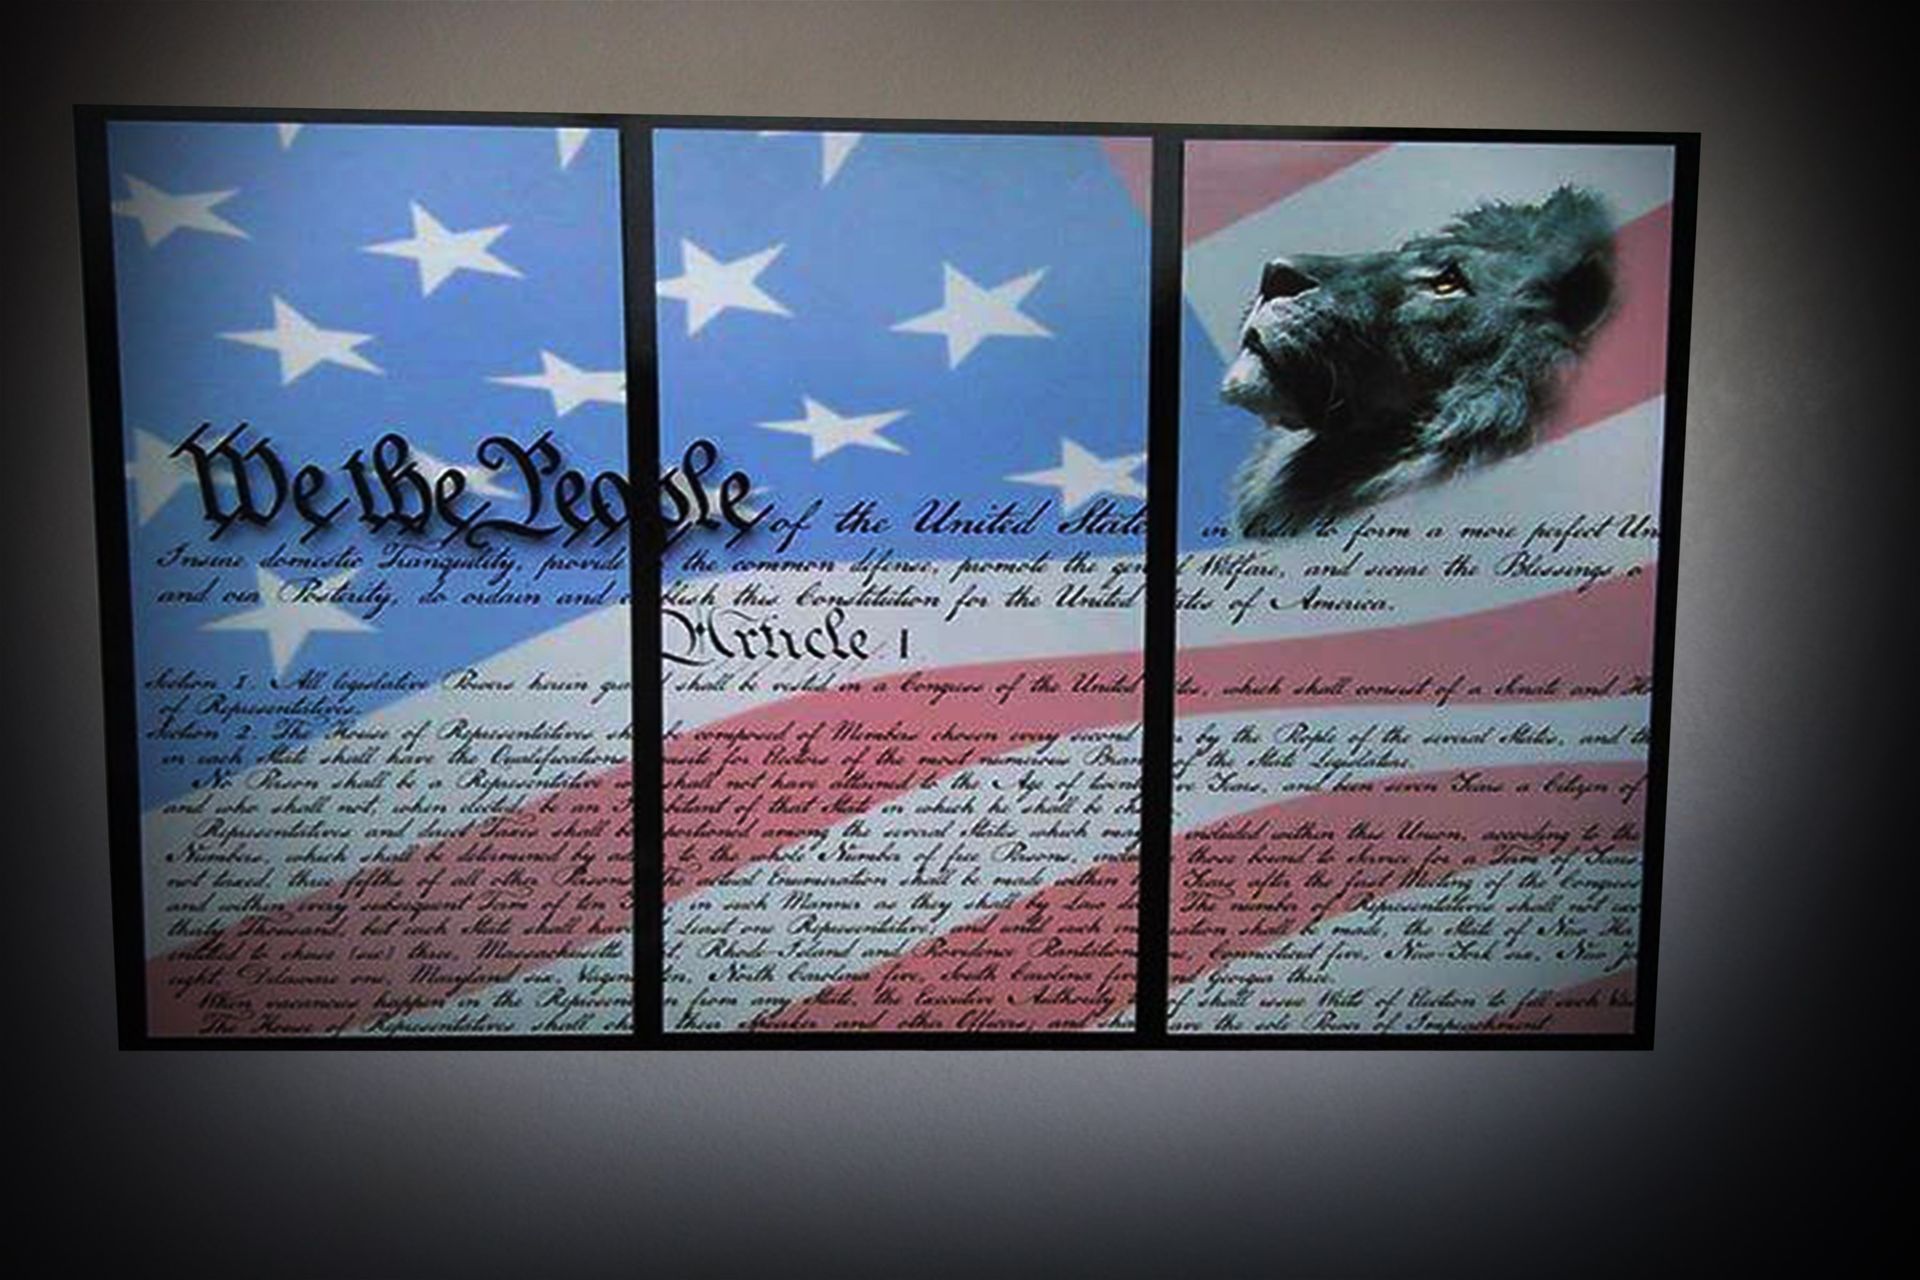 We the People of the United State in Order to form a more perfect Un
Insure domestic Tranquility, provide the common defense, promote the gen l Welfare, and secure the Blessings o
and our Posterity, do ordain and e blish this Constitution for the United tates of America.
Article I
Section 1. All legislative Powers herein gra shall be vested in a Congress of the United tes, which shall consist of a Senate and H
of Representatives.
Section 2. The House of Representatives sh be composed of Members chosen every second by the People of the several States, and th
in each State shall have the Qualifications uisite for Electors of the most numerous Bran of the State Legislature.
No Person shall be a Representative shall not have attained to the Age of twent ve Years, and been seven Years a Citizen of
and who shall not, when elected, be an I bitant of that State in which he shall be ch
Representatives and direct Taxes shall be portioned among the several States which may included within this Union, according to the
Numbers, which shall be determined by ad to the whole Number of free Persons, inclu those bound to Service for a Term of Years,
not taxed, three fifths of all other Persons The actual Enumeration shall be made within Years after the first Meeting of the Congress
and within every subsequent Term of ten in such Manner as they shall by Law The number of Representatives shall not
thirty Thousand, but each State shall have Least one Representative; and until such shall be made, the State of New
entitled to chuse three, Massachusetts Rhode-Island and Providence Plantations Connecticut five, New-York six, New
eight, Delaware one, Maryland six, Virgin ten, North Carolina five, South Carolina five and Georgia three.
When vacancies happen in the Represen n from any State, the Executive Authority shall issue Writs of Election to fill such
The House of Representatives shall ch their Speaker and other Officers; and sha ave the sole Power of Impeachment